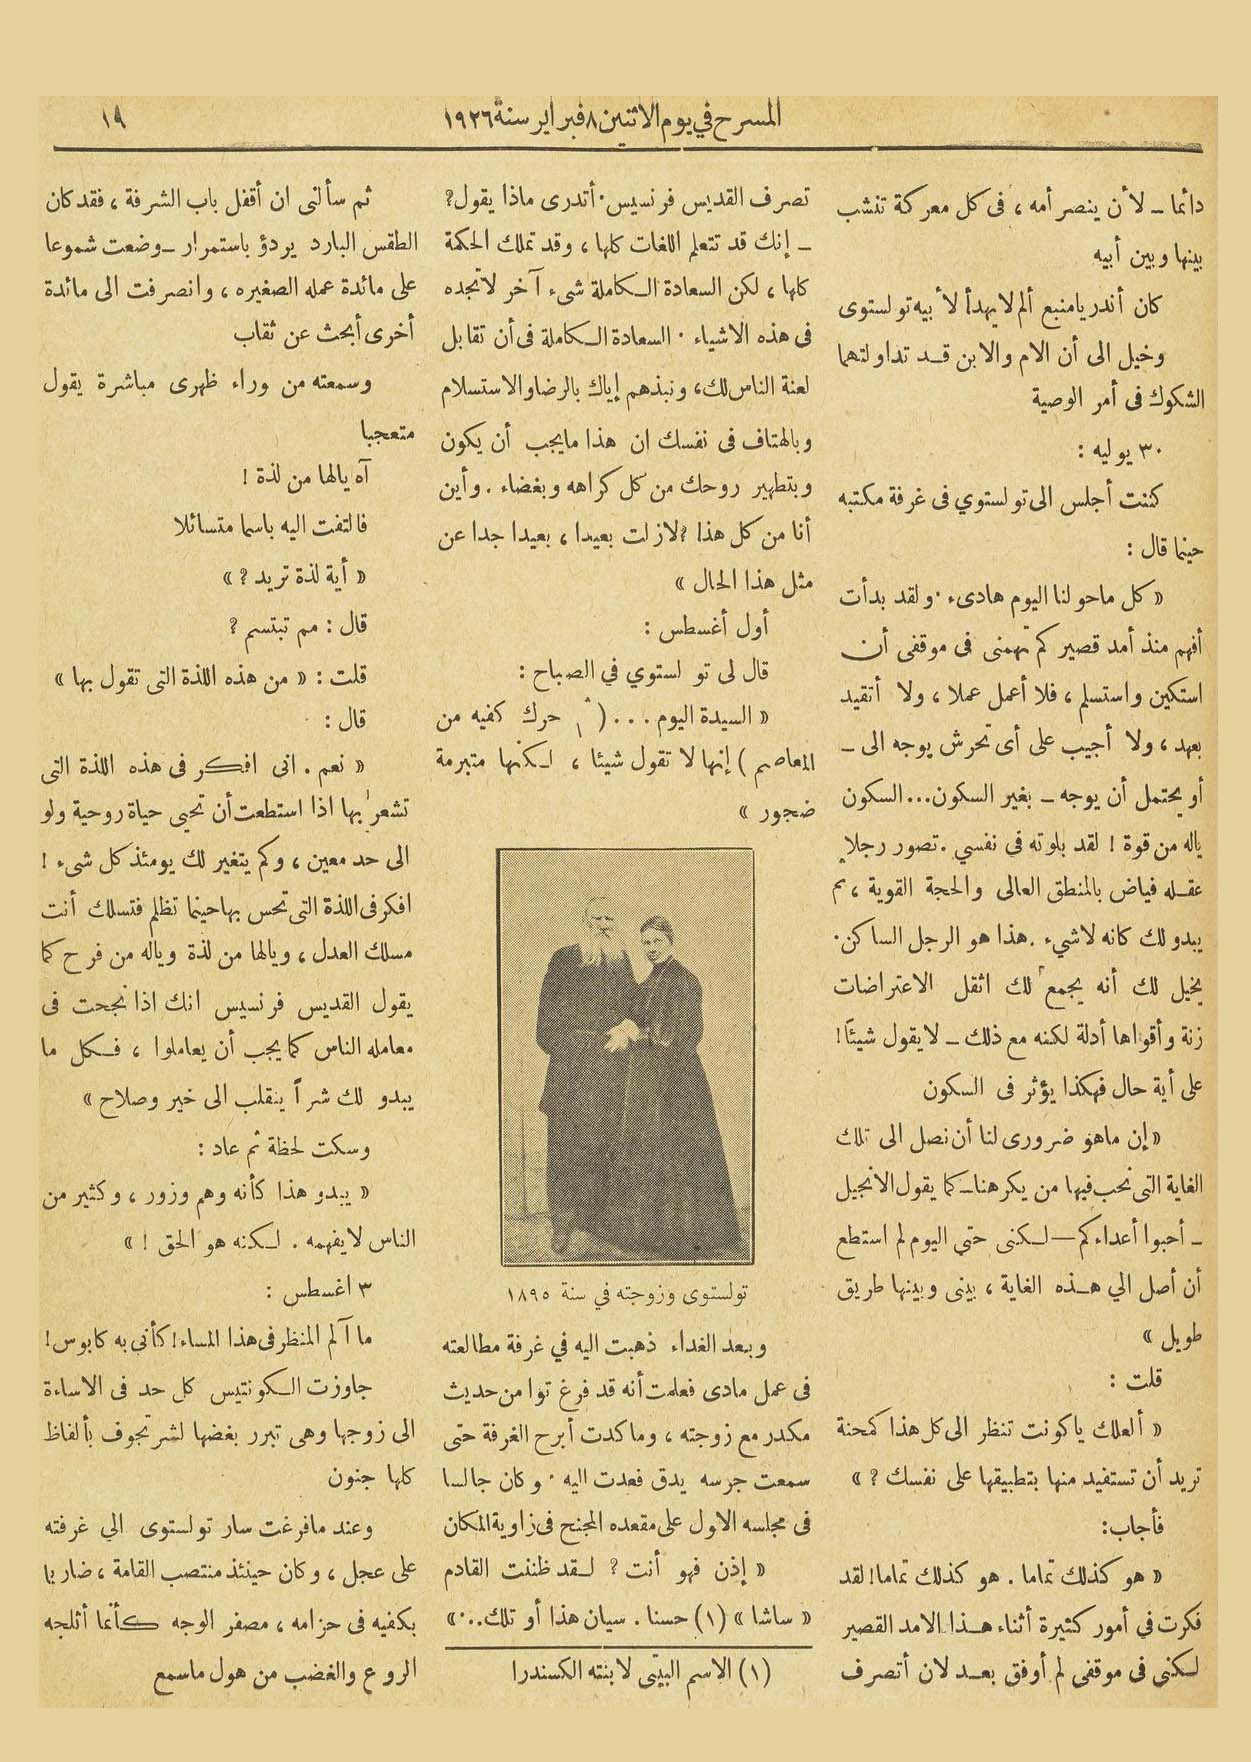 المسرح في يوم الاثنين ٨ فبراير سنة ١٩٢٦
١٩
دائما ــ لأن ينصر أمه ، فى كل معركة تنشب
بينها وبين أبيه
كان أندريا منبع ألم لا يهدأ لأبيه تولستوى
وخيل الى أن الام والابن قــد تداولتهما
الشكوك فى أمر الوصية
٣٠ يوليه :
كنت أجلس الى تولستوي فى غرفة مكتبه
حينما قال :
« كل ماحولنا اليوم هادىء . ولقد بدأت
أفهم منذ أمد قصير كم تهمنى فى موقفى أن
استكين واستسلم ، فلا أعمل عملا ، ولا أتقيد
بعهد ، ولا أجيب على أى تحرش يوجه الى ــ
أو يحتمل أن يوجه ــ بغير السكون ... السكون
ياله من قوة ! لقد بلوته فى نفسي . تصور رجلا
عقــله فياض بالمنطق العالى والحجة القوية ، ثم
يبدو لك كانه لاشيء . هذا هو الرجل الساكن .
يخيل لك أنه يجمع لك اثقل الاعتراضات
زنة وأقواها أدلة لكنه مع ذلك ــ لا يقول شيئاً !
على أية حال فهكذا يؤثر فى السكون
« إن ماهو ضرورى لنا أن نصل الى تلك
الغاية التى نحب فيها من يكرهنا ــ كما يقول الانجيل
ــ أحبوا أعداءكم ــ لــكنى حتي اليوم لم استطع
أن أصل الي هــذه الغاية ، بينى وبينها طريق
طويل »
قلت :
« ألعلك ياكونت تنظر الى كل هذا كمحنة
تريد أن تستفيد منها بتطبيقها على نفسك ? »
فأجاب :
« هو كذلك تماما . هو كذلك تماما ! لقد
فكرت في أمور كثيرة أثناء هــذا الامد القصير
لــكنى فى موقفى لم أوفق بعــد لان أتصرف
تصرف القديس فرنسيس . أتدرى ماذا يقول ?
ــ إنك قد تتعلم اللغات كلها ، وقد تملك الحكمة
كلها ، لكن السعادة الــكاملة شىء آخر لاتجده
فى هذه الاشياء . السعادة الــكاملة فى أن تقابل
لعنة الناس لك ، ونبذهم إياك بالرضا والاستسلام
وبالهتاف فى نفسك ان هذا مايجب أن يكون
وبتطهير روحك من كل كراهه وبغضاء . وأين
أنا من كل هذا ? لازلت بعيدا ، بعيدا جدا عن
مثل هذا الحال »
أول أغسطس :
قال لى تو لستوي في الصباح :
« السيدة اليوم . . . ( حرك كفيه من
المعاصم ) إنها لا تقول شيئا ، لــكنها متبرمة
ضجور »
تولستوى وزوجته في سنة ١٨٩٥
وبعد الغداء ذهبت اليه في غرفة مطالعته
فى عمل مادى فعلمت أنه قد فرغ توا من حديث
مكدر مع زوجته ، وما كدت أبرح الغرفة حتى
سمعت جرسه يدق فعدت اليه . وكان جالسا
فى مجلسه الاول على مقعده المجنح فى زاوية المكان
« إذن فهو أنت ? لــقد ظننت القادم
« ساشا » (١) حسنا . سيان هذا أو تلك . . . »
(١) الاسم البيتى لابنته الكسندرا
ثم سألنى ان أقفل باب الشرفة ، فقد كان
الطقس البارد يردؤ باستمرار ــ وضعت شموعا
على مائدة عمله الصغيره ، وانصرفت الى مائدة
أخرى أبحث عن ثقاب
وسمعته من وراء ظهرى مباشرة يقول
متعجبا
آه يالها من لذة !
فالتفت اليه باسما متسائلا
« أية لذة تريد ? »
قال : مم تبتسم ?
قلت : « من هذه اللذة التى تقول بها »
قال :
« نعم . انى افكر فى هذه اللذة التى
تشعر بها اذا استطعت أن تحيى حياة روحية ولو
الى حد معين ، وكم يتغير لك يومئذ كل شىء !
افكر فى اللذة التى تحس بها حينما تظلم فتسلك أنت
مسلك العدل ، ويالها من لذة وياله من فرح كما
يقول القديس فرنسيس انك اذا نجحت فى
معامله الناس كما يجب أن يعاملوا ، فــكل ما
يبدو لك شراً ينقلب الى خير وصلاح »
وسكت لحظة ثم عاد :
« يبدو هذا كأنه وهم وزور ، وكثير من
الناس لايفهمه . لــكنه هو الحق ! »
٣ اغسطس :
ما آلم المنظر فى هذا المساء ! كأنى به كابوس !
جاوزت الــكونتيس كل حد فى الاساءة
الى زوجها وهى تبرر بغضها لشرتجوف بألفاظ
كلها جنون
وعند مافرغت سار تولستوى الي غرفته
على عجل ، وكان حينئذ منتصب القامة ، ضاربا
بكفيه فى حزامه ، مصفر الوجه كأنما أثلجه
الروع والغضب من هول ماسمع